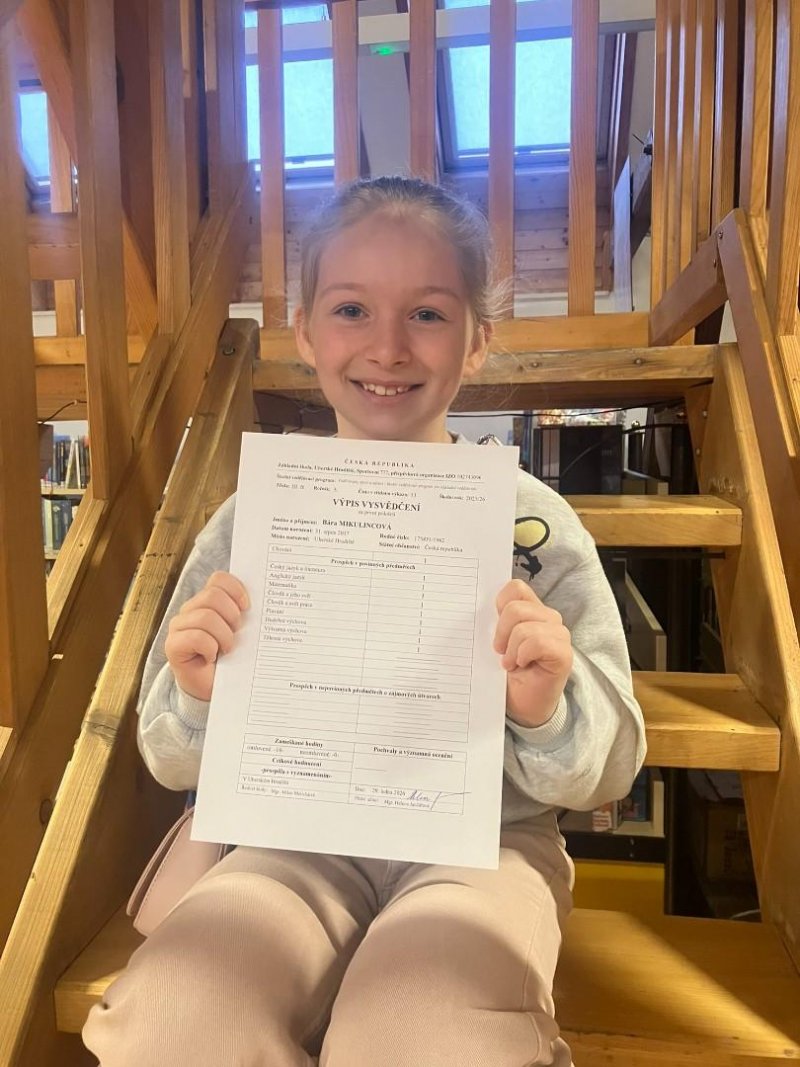 ČESKÁ REPUBLIKA
Základní škola, Uherské Hradiště, Sportovní 777, příspěvková organizace
Školní vzdělávací program:
Třída: III. B Ročník: 3. Školní rok: 2025/26
VÝPIS VYSVĚDČENÍ
za první pololetí
Jméno a příjmení: Bára MIKULINCOVÁ
Datum narození: 31. srpna 2017 Rodné číslo:
Místo narození: Uherské Hradiště Státní občanství: Česká republika
Chování 1
Prospěch v povinných předmětech
Český jazyk a literatura 1
Anglický jazyk 1
Matematika 1
Člověk a jeho svět 1
Člověk a svět práce 1
Psaní 1
Hudební výchova 1
Výtvarná výchova 1
Tělesná výchova 1
Prospěch v nepovinných předmětech a zájmových útvarech
Zameškané hodiny
neomluvené: -0-
Pochvaly a významná ocenění
Celkové hodnocení
-prospěla s vyznamenáním-
V Uherském Hradišti
Dne: 29. ledna 2026
Ředitel školy: Mgr.
Třídní učitel: Mgr.